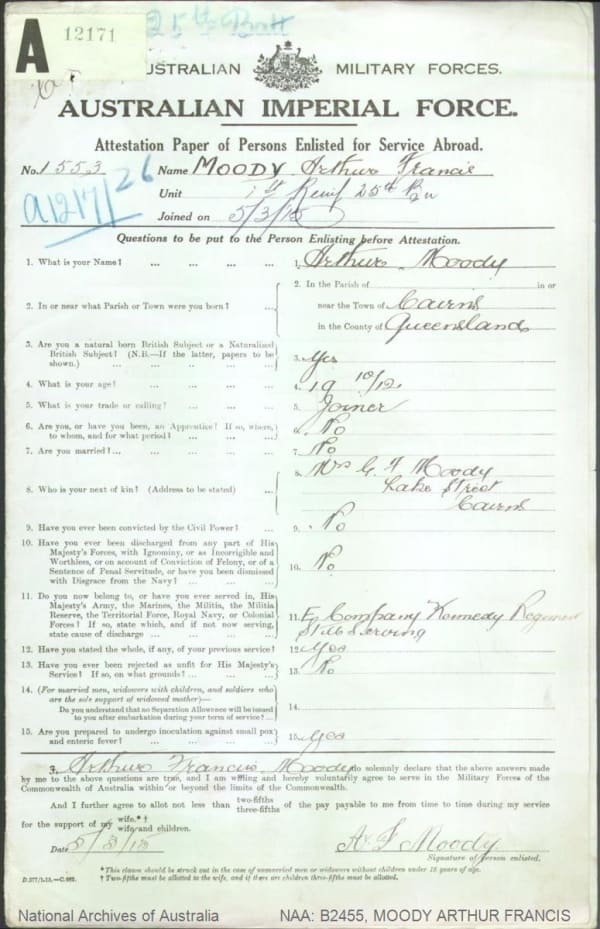 A
12171
25th Batt
AUSTRALIAN MILITARY FORCES.
AUSTRALIAN IMPERIAL FORCE.
Attestation Paper of Persons Enlisted for Service Abroad.
No. 1553 Name MOODY Arthur Francis
A1217/26
Unit 1st Reinf 25th Bn
Joined on 5/3/15
Questions to be put to the Person Enlisting before Attestation.
1. What is your Name? ... ... ... ... 1. Arthur Moody
2. In or near what Parish or Town were you born? ... 2. In the Parish of in or
near the Town of Cairns
in the County of Queensland
3. Are you a natural born British Subject or a Naturalized
British Subject? (N.B.—If the latter, papers to be
shown.) ... ... ... ... 3. Yes
4. What is your age? ... ... ... ... 4. 19 10/12
5. What is your trade or calling? ... ... ... 5. Joiner
6. Are you, or have you been, an Apprentice? If so, where,
to whom, and for what period? ... ... ... 6. No
7. Are you married? ... ... ... ... 7. No
8. Who is your next of kin? (Address to be stated) ... 8. Mrs G. F Moody
Lake Street
Cairns
9. Have you ever been convicted by the Civil Power? ... 9. No
10. Have you ever been discharged from any part of His
Majesty's Forces, with Ignominy, or as Incorrigible and
Worthless, or on account of Conviction of Felony, or of a
Sentence of Penal Servitude, or have you been dismissed
with Disgrace from the Navy? ... ... ... 10. No
11. Do you now belong to, or have you ever served in, His
Majesty's Army, the Marines, the Militia, the Militia
Reserve, the Territorial Force, Royal Navy, or Colonial
Forces? If so, state which, and if not now serving,
state cause of discharge ... ... ... 11. E Company Kennedy Regiment
Still Serving
12. Have you stated the whole, if any, of your previous service? 12. Yes
13. Have you ever been rejected as unfit for His Majesty's
Service? If so, on what grounds? ... ... ... 13. No
14. (For married men, widowers with children, and soldiers who
are the sole support of widowed mother)—
Do you understand that no Separation Allowance will be issued
to you after embarkation during your term of service? ... 14.
15. Are you prepared to undergo inoculation against small pox
and enteric fever? ... ... ... ... 15. Yes
I, Arthur Francis Moody do solemnly declare that the above answers made
by me to the above questions are true, and I am willing and hereby voluntarily agree to serve in the Military Forces of the
Commonwealth of Australia within or beyond the limits of the Commonwealth.
And I further agree to allot not less than two-fifths three-fifths of the pay payable to me from time to time during my service
for the support of my wife.* † wife and children.
Date 5/3/15 A. F Moody
Signature of person enlisted.
* This clause should be struck out in the case of unmarried men or widowers without children under 18 years of age.
† Two-fifths must be allotted to the wife, and if there are children three-fifths must be allotted.
National Archives of Australia NAA: B2455, MOODY ARTHUR FRANCIS